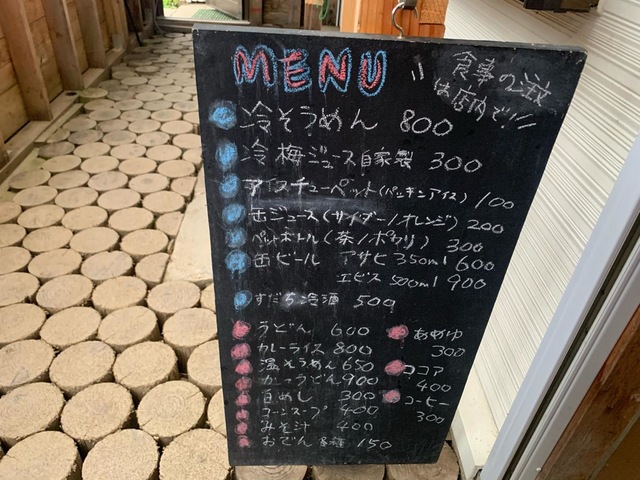 MENU
食事の注文
は店内で!!
冷そうめん 800
冷梅ジュース自家製 300
アイスチューペット(パッキンアイス) 100
缶ジュース(サイダー/オレンジ) 200
ペットボトル(茶/ポカリ) 300
缶ビール アサヒ 350ml 600
エビス 500ml 900
すだち冷酒 500
うどん 600
カレーライス 800
温そうめん 650
カレーうどん 900
白めし 300
コーンスープ 400
みそ汁 400
おでん 各種 150
あめゆ
300
ココア
400
コーヒー
300